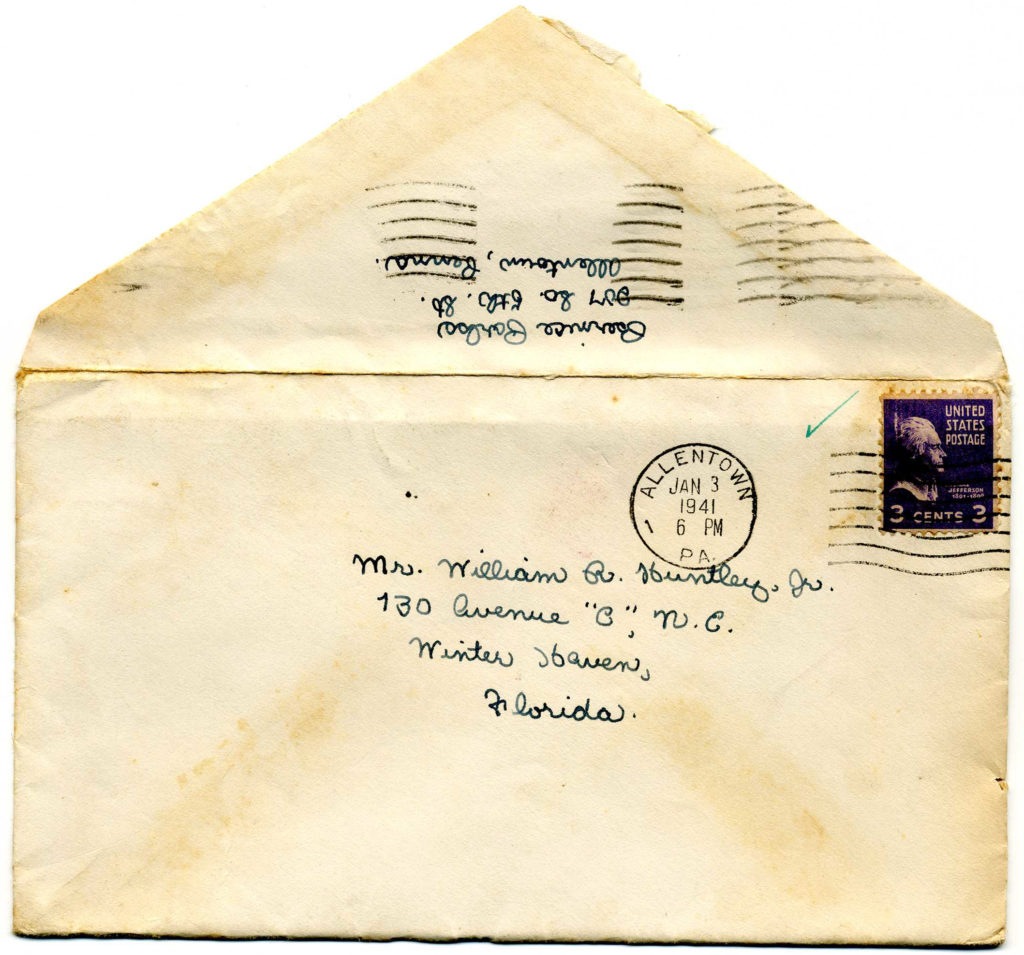 Bernice
So. 5th. St.
Allentown, Penna.
UNITED
STATES
POSTAGE
JEFFERSON
1801-1809
3 CENTS 3
ALLENTOWN
JAN 3
1941
6 PM
PA.
1
Mr. William R. Huntley, Jr.
130 Avenue "B", N.E.
Winter Haven,
Florida.